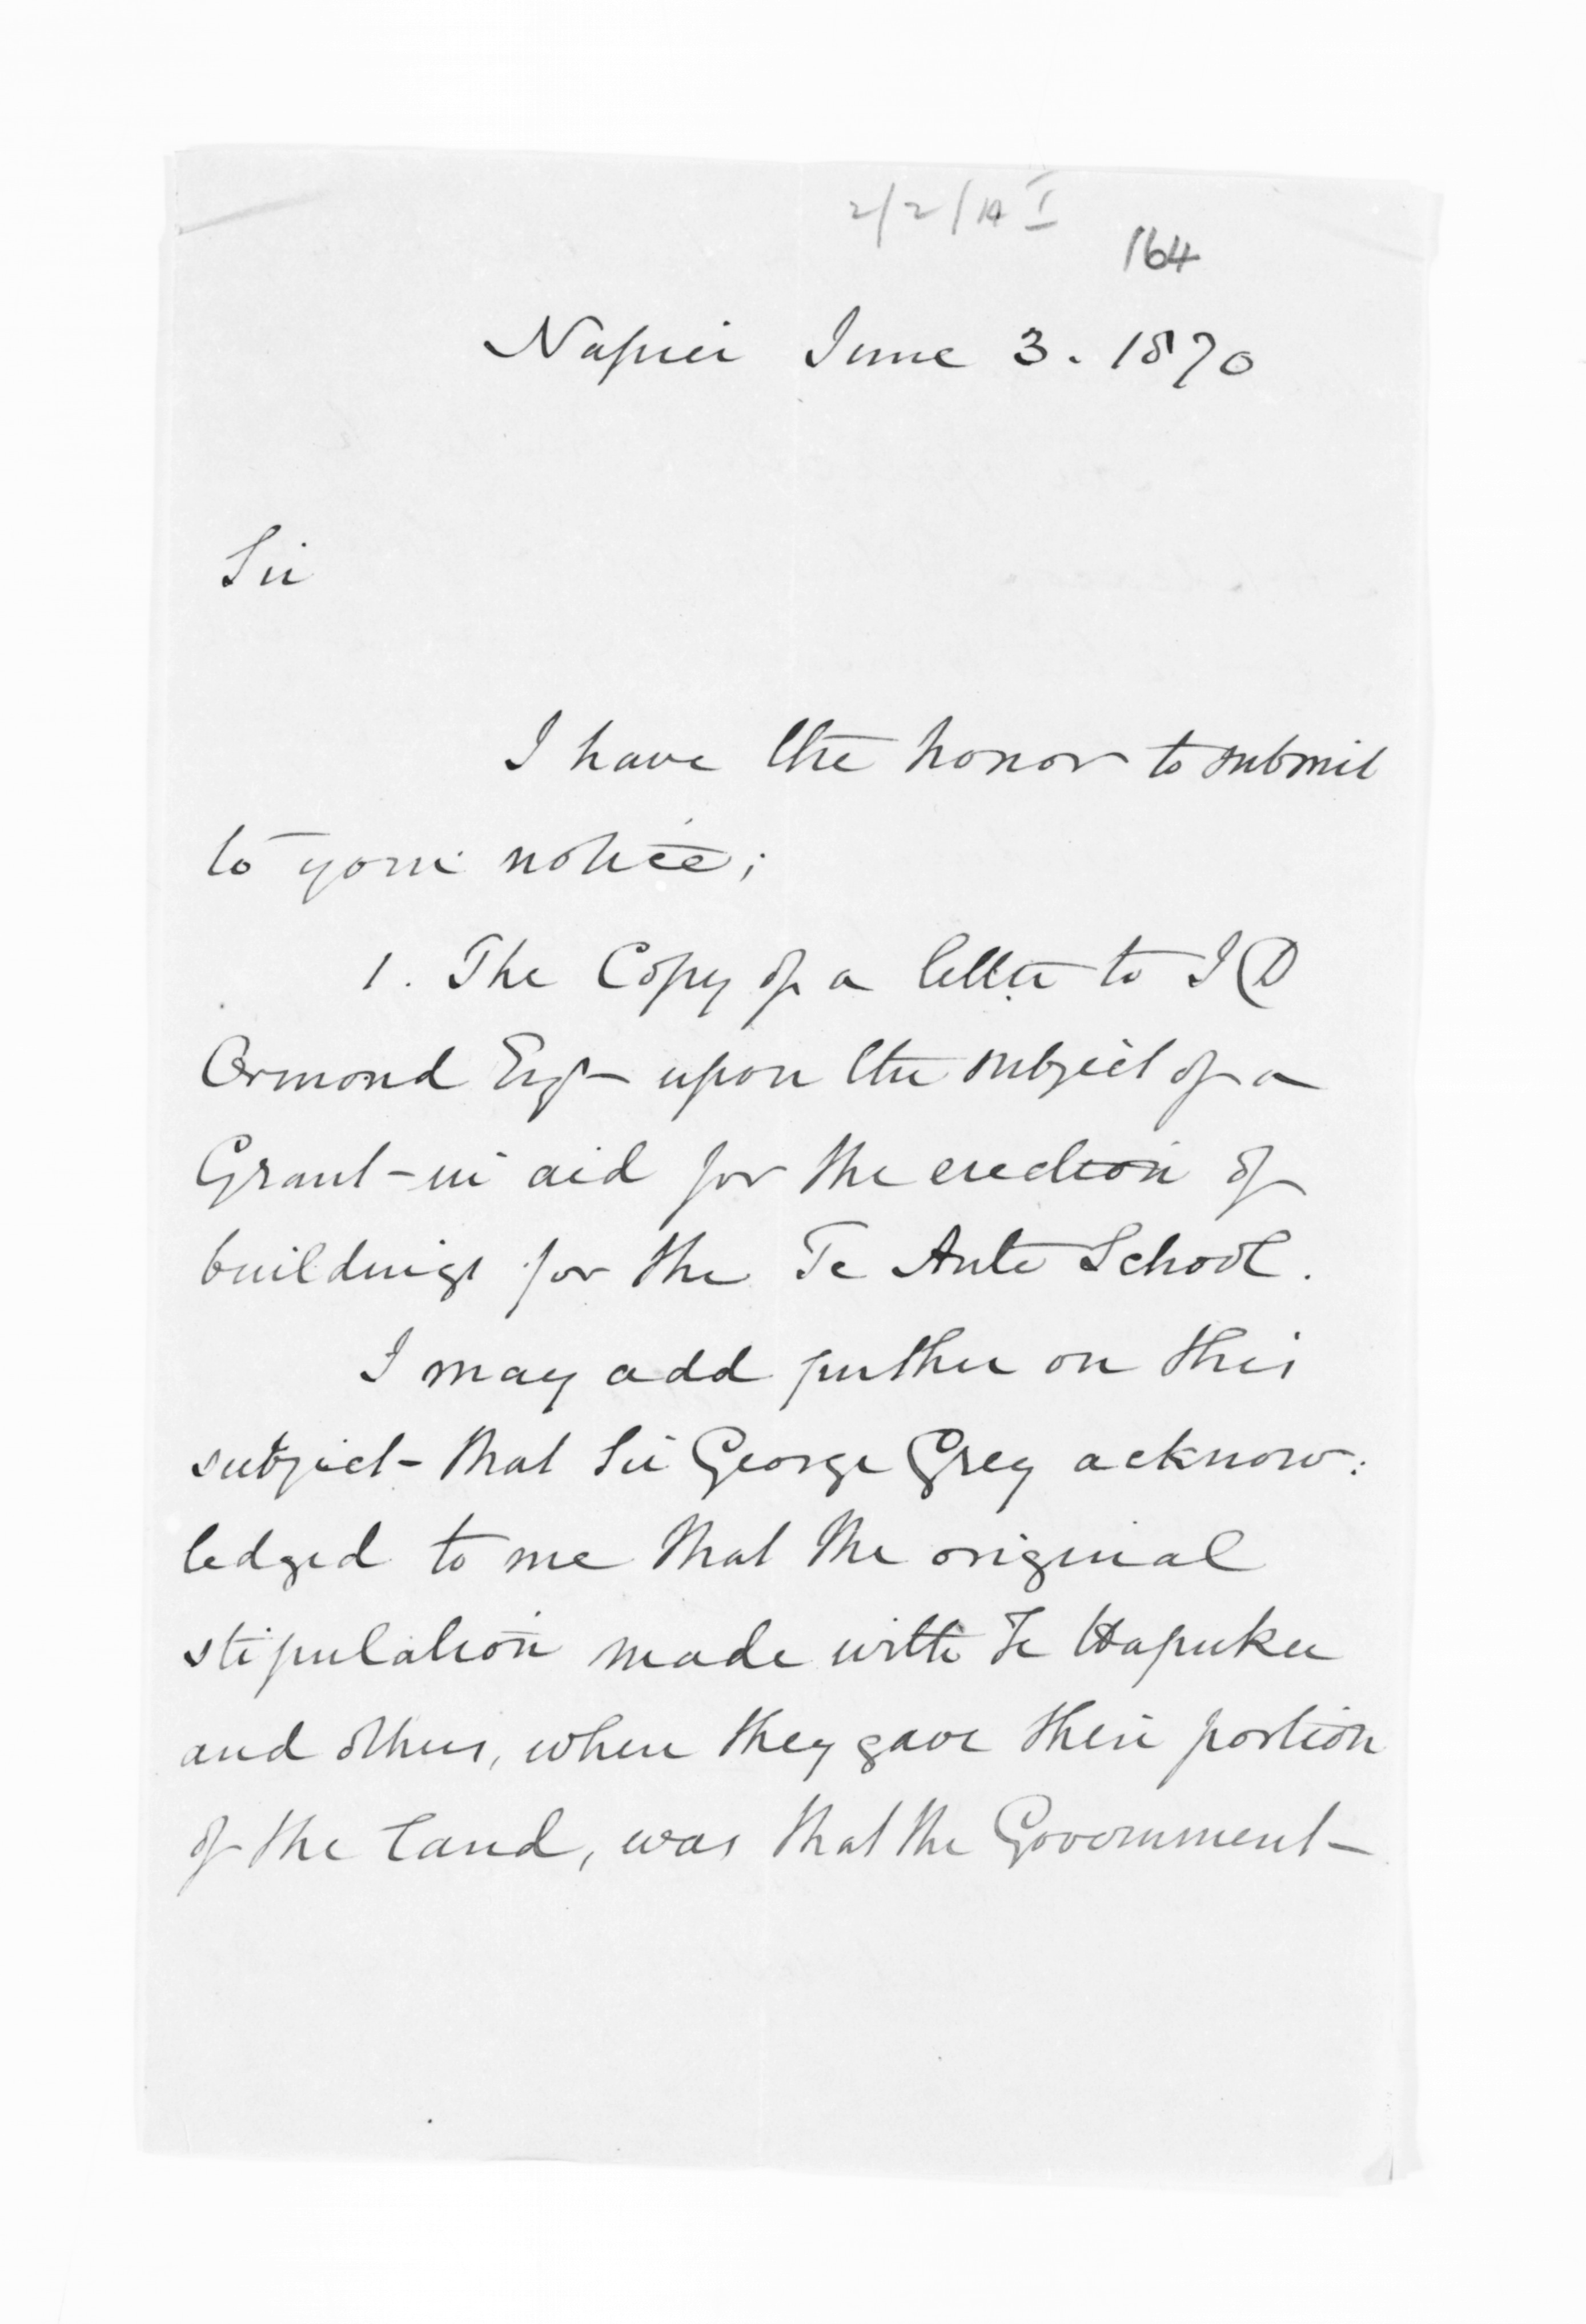 2/2/14 I
164
Napier June 3. 1870
Sir
I have the honor to submit
to your notice;
1. The Copy of a letter to J D
Ormond Esqr upon the subject of a
Grant-in aid for the erection of
buildings for the Te Aute School.
I may add further on this
subject that Sir George Grey acknow:
ledged to me that the original
stipulation made with Te Hapuku
and others, when they gave their portion
of the land, was that the Government